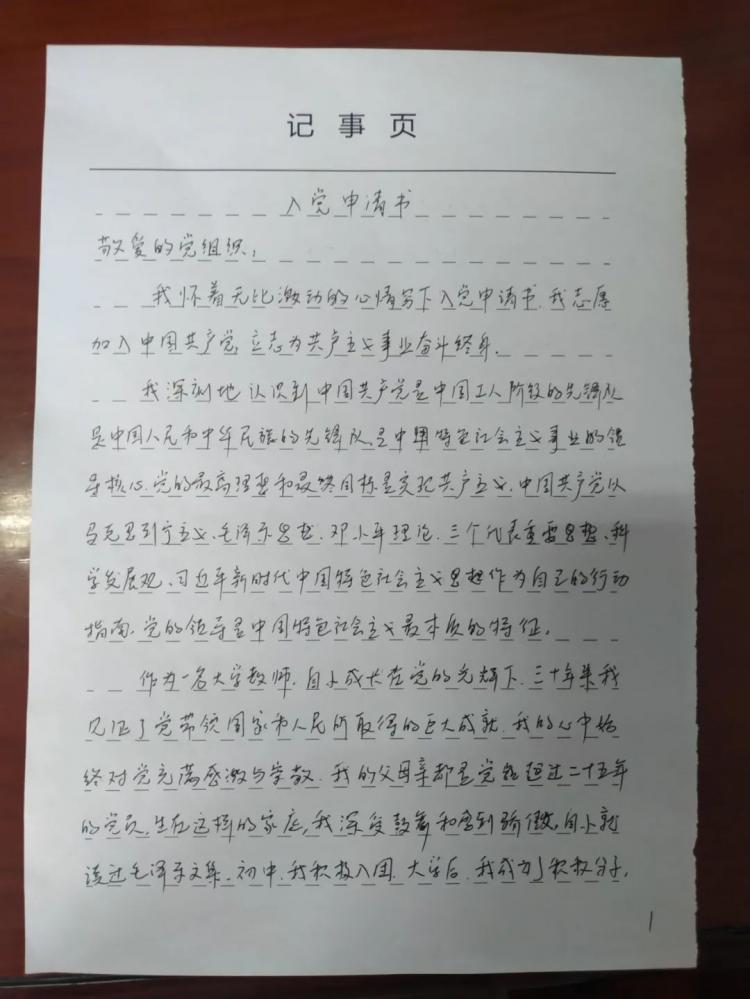 记事页
入党申请书
敬爱的党组织:
我怀着无比激动的心情写下入党申请书.我志愿
加入中国共产党,立志为共产主义事业奋斗终身.
我深刻地认识到中国共产党是中国工人阶级的先锋队
是中国人民和中华民族的先锋队,是中国特色社会主义事业的领
导核心.党的最高理想和最终目标是实现共产主义.中国共产党以
马克思列宁主义、毛泽东思想.邓小平理论.三个代表重要思想、科
学发展观、习近平新时代中国特色社会主义思想作为自己的行动
指南.党的领导是中国特色社会主义最本质的特征.
作为一名大学教师.自小成长在党的光辉下.三十年来我
见证了党带领国家和人民所取得的巨大成就.我的心中始
终对党充满感激与崇敬.我的父母亲都是党龄超过二十五年
的党员.生在这样的家庭,我深受鼓舞和感到骄傲.自小就
读过毛泽东文集.初中.我积极入团.大学后.我成为了积极分子.
1